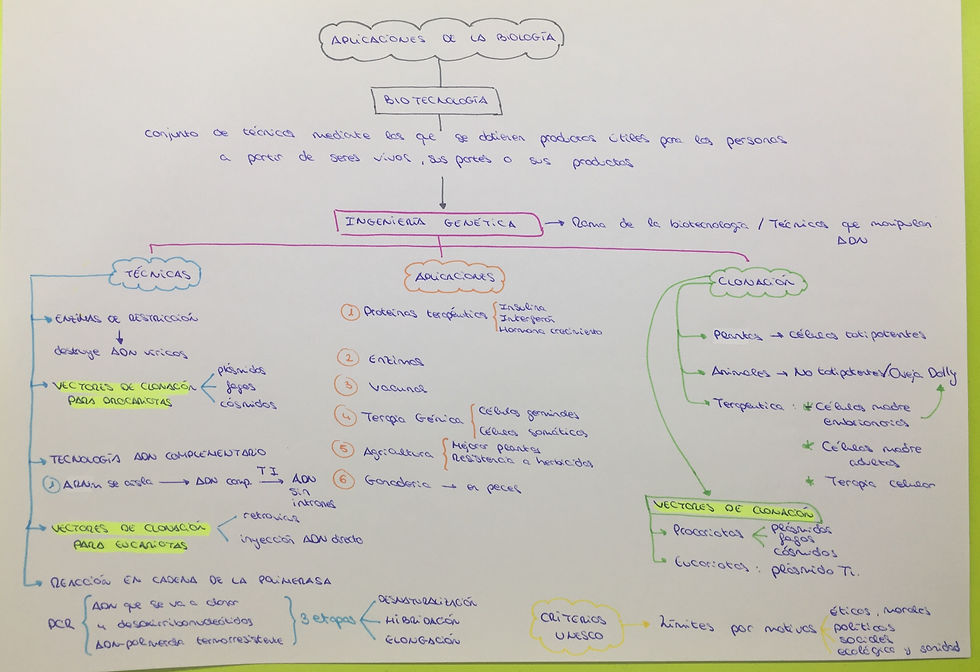 APLICACIONES DE LA BIOLOGÍA
BIOTECNOLOGÍA
conjunto de técnicas mediante las que se obtienen productos útiles para las personas
a partir de seres vivos, sus partes o sus productos
INGENIERÍA GENÉTICA → Rama de la biotecnología / Técnicas que manipulan
ADN
TÉCNICAS
ENZIMAS DE RESTRICCIÓN
destruye ADN víricos
VECTORES DE CLONACÓN
PARA PROCARIOTAS
plásmidos
fagos
cósmidos
TECNOLOGÍA ADN COMPLEMENTARIO
1 ARNm se aisla → ADN comp. T I → ADN
sin
intrones
VECTORES DE CLONACIÓN
PARA EUCARIOTAS
retrovirus
inyección ADN directo
REACCIÓN EN CADENA DE LA POLIMERASA
PCR
ADN que se va a clonar
4 desoxirribonucleótidos
ADN-polimerasa termorresistente
3 etapas
DESNATURALIZACIÓN
HIBRIDACIÓN
ELONGACIÓN
APLICACIONES
1 Proteínas terapéuticas
Insulina
Interferón
Hormona crecimiento
2 Enzimas
3 Vacunas
4 Terapia Génica
Células germinales
Células somáticas
5 Agricultura
Mejorar plantas
Resistencia a herbicidas
6 Ganadería → en peces
CLONACIÓN
Plantas → Células totipotentes
Animales → No totipotentes/Oveja Dolly
Terapéutica : * Células madre
embrionarias
* Células madre
adultas
* Terapia celular
VECTORES DE CLONACIÓN
Procariotas
plásmidos
fagos
cósmidos
Eucariotas : plásmido Ti.
CRITERIOS
UNESCO
→ Límites por motivos
éticos, morales
políticos
sociales
ecológico y sanidad